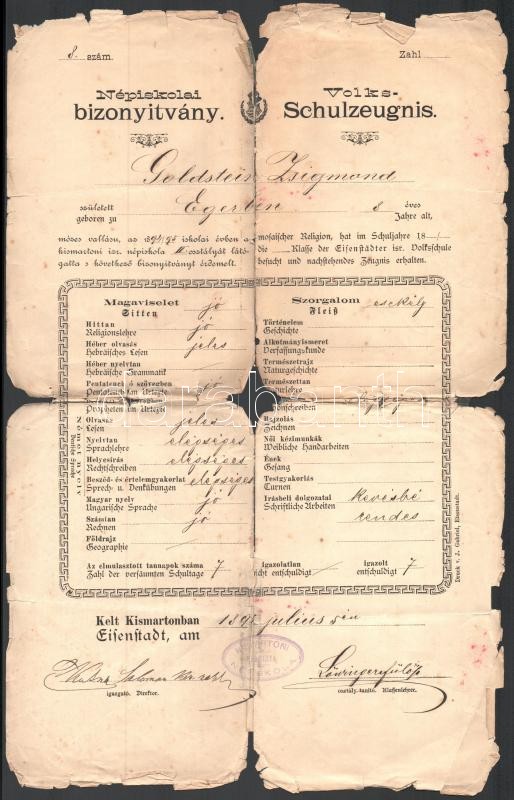 8. szám.
Zahl
Népiskolai
bizonyitvány.
Volks-
Schulzeugnis.
Goldstein Zsigmond
született
geboren zu
Egerben
8
éves
Jahre alt,
mózes vallásu, az iskolai évben a
kismartoni isr. népiskola III osztályát láto-
gatta s következő bizonyitványt érdemelt.
mosaischer Religion, hat im Schuljahre 18
die Klasse der Eisenstädter isr. Volksschule
besucht und nachstehendes Zeugnis erhalten.
Magaviselet jó
Sitten
Hittan jó
Religionslehre
Héber olvasás jeles
Hebräisches Lesen
Héber nyelvtan
Hebräische Grammatik
Pentateuch ó szövegben jó
Pentateuch im Urtexte
Propheten im Urtexte
Német nyelv
Deutsche Sprache
Olvasás jeles
Lesen
Nyelvtan elégséges
Sprachlehre
Helyesírás elégséges
Rechtschreiben
Beszéd- és értelemgyakorlat elégséges
Sprech- u. Denkübungen
Magyar nyelv jó
Ungarische Sprache
Számtan jó
Rechnen
Földrajz
Geographie
Szorgalom csekély
Fleiß
Történelem
Geschichte
Alkotmányismeret
Verfassungskunde
Természetrajz
Naturgeschichte
Természettan
Naturlehre
Schönschreiben
Rajzolás
Zeichnen
Női kézimunkák
Weibliche Handarbeiten
Ének
Gesang
Testgyakorlás
Turnen
Irásbeli dolgozatai kevésbé
Schriftliche Arbeiten rendes
Az elmulasztott tannapok száma
Zahl der versäumten Schultage 7
igazolatlan
nicht entschuldigt
igazolt
entschuldigt 7
Druck v. J. Gabriel, Eisenstadt.
Kelt Kismartonban
Eisenstadt, am
julius
igazgató. Director.
Löwinger Fülöp
osztály-tanító. Klassenlehrer.
darabanth